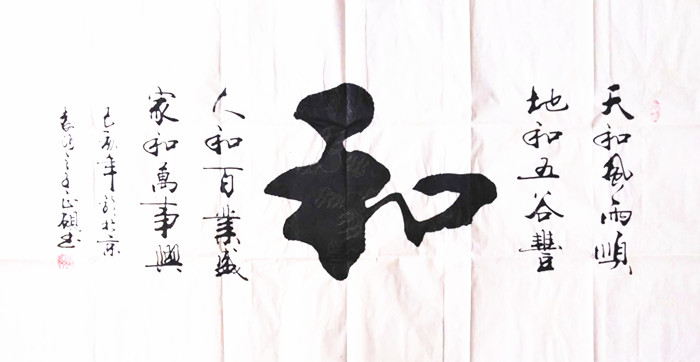 天和風雨順
地和五谷豐
和
人和百業盛
家和萬事興
年於北京